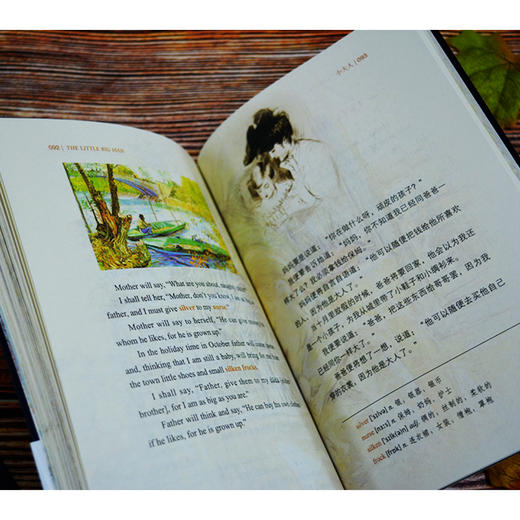 092 | THE LITTLE BIG MAN
Mother will say, "What are you about, naughty
I shall tell her, "Mother, don't you know,
father, and I must give silver to my nurse."
Mother will say to herself, "He can give
whom he likes, for he is grown up."
In the holiday time in October father will
and, thinking that I am still a baby, will bring for
the town little shoes and small silken frocks.
I shall say, "Father, give them to my dada
brother], for I am as big as you are."
Father will think and say, "He can buy his own
if he likes, for he is grown up."
小大人 | 093
妈妈要说道："你在做什么呀，顽皮的孩子？"
我要告诉她道："妈妈，你不知道我已经同爸爸一
样大了么？我必须拿钱给保姆。"
妈妈便将自言自语道："他可以随便把钱给他所喜欢
的人，因为他是大人了。"
当十月里放假的时候，爸爸将要回家，他会以为我还
是一个小孩子，为我从城里带了小鞋子和小绸衫来。
我便要说道："爸爸，把这些东西给哥哥罢，因为我
已经同你一样大了。"
爸爸便将想了一想，说道："他可以随便去买他自己
穿的衣裳，因为他是大人了。"
silver ['sɪlvə] n. 银，银器，银币
nurse [nɜːs] n. 保姆，奶妈，护士
silken ['sɪlk(ə)n] adj. 绸的，丝制的，柔软的
frock [frɒk] n. 连衣裙，女装，僧袍，罩袍